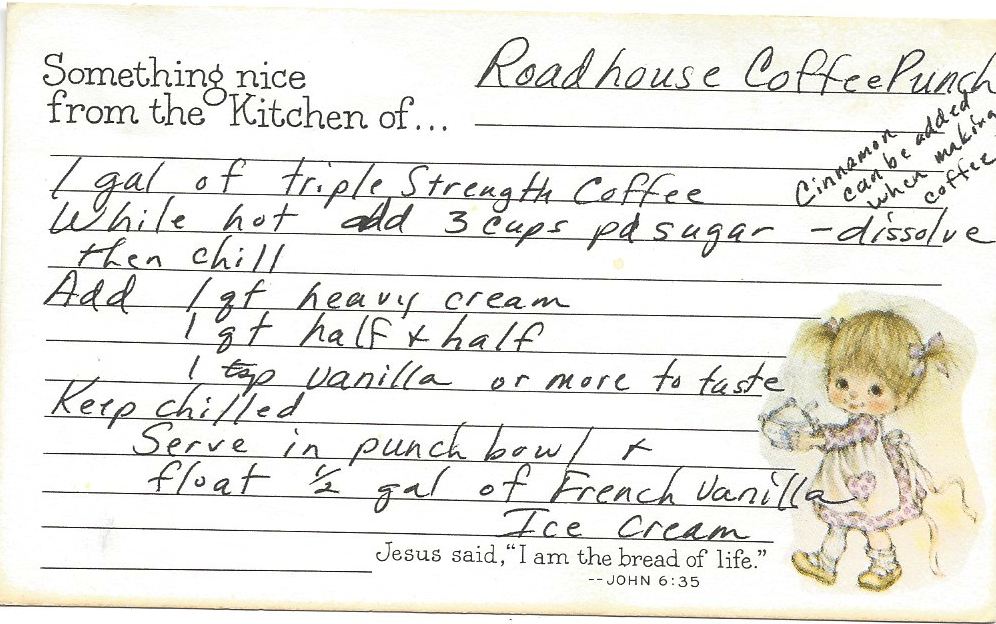 Something nice
from the Kitchen of...
Roadhouse Coffee Punch
Cinnamon
can be added
when making
coffee
1 gal of triple Strength Coffee
While hot add 3 cups pd sugar - dissolve
then chill
Add 1 qt heavy cream
1 qt half + half
1 tsp vanilla or more to taste
Keep chilled
Serve in punch bowl +
float ½ gal of French Vanilla
Ice Cream
Jesus said, "I am the bread of life."
--JOHN 6:35